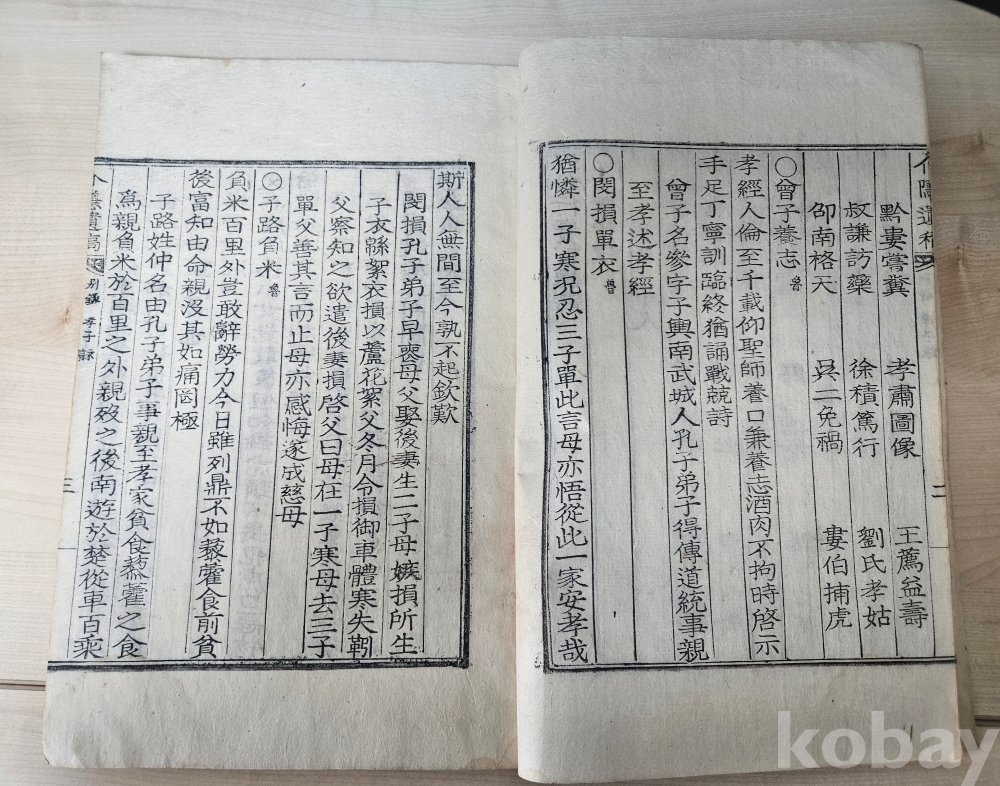 隱遺稿
二
黔婁嘗糞 孝肅圖像 王薦益壽
叔謙訪藥 徐積篤行 劉氏孝姑
邵南格天 吳二免禍 婁伯捕虎
○曾子養志 魯
孝經人倫至千載仰聖師養口兼養志酒肉不拘時啓示
手足丁寧訓臨終猶誦戰兢詩
曾子名參字子輿南武城人孔子弟子得傳道統事親
至孝述孝經
○閔損單衣 魯
猶憐一子寒況忍三子單此言母亦悟從此一家安孝哉
斯人人無間至今孰不起欽歎
閔損孔子弟子早喪母父娶後妻生二子母嫉損所生
子衣緜絮衣損以蘆花絮父冬月令損御車體寒失靷
父察知之欲遣後妻損啓父曰母在一子寒母去三子
單父善其言而止母亦感悔遂成慈母
○子路負米 魯
負米百里外豈敢辭勞力今日雖列鼎不如藜藿食前貧
後富知由命親沒其如痛罔極
子路姓仲名由孔子弟子事親至孝家貧食藜藿之食
爲親負米於百里之外親歿之後南遊於楚從車百乘
隱遺稿 別錄 孝子錄
三
kobay